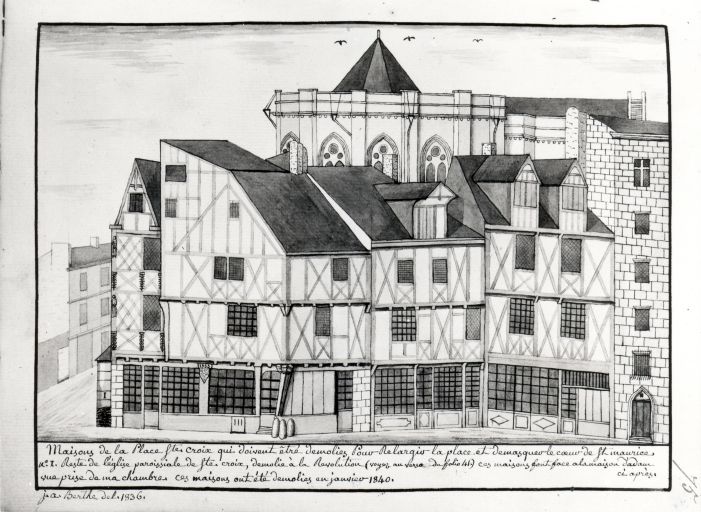 Maisons de la Place Ste croix qui doivent être demolies Pour Relargir la place et demasquer le cœur de St maurice
N.° I. Reste de l'église paroissiale de Ste croix, demolie à la Revolution (voyez au verso du folio 41) ces maisons font face a la maison d'adam
vue prise de ma chambre ces maisons ont été demolies en janvier 1840. ci après.
j-a Berthe del. 1836.